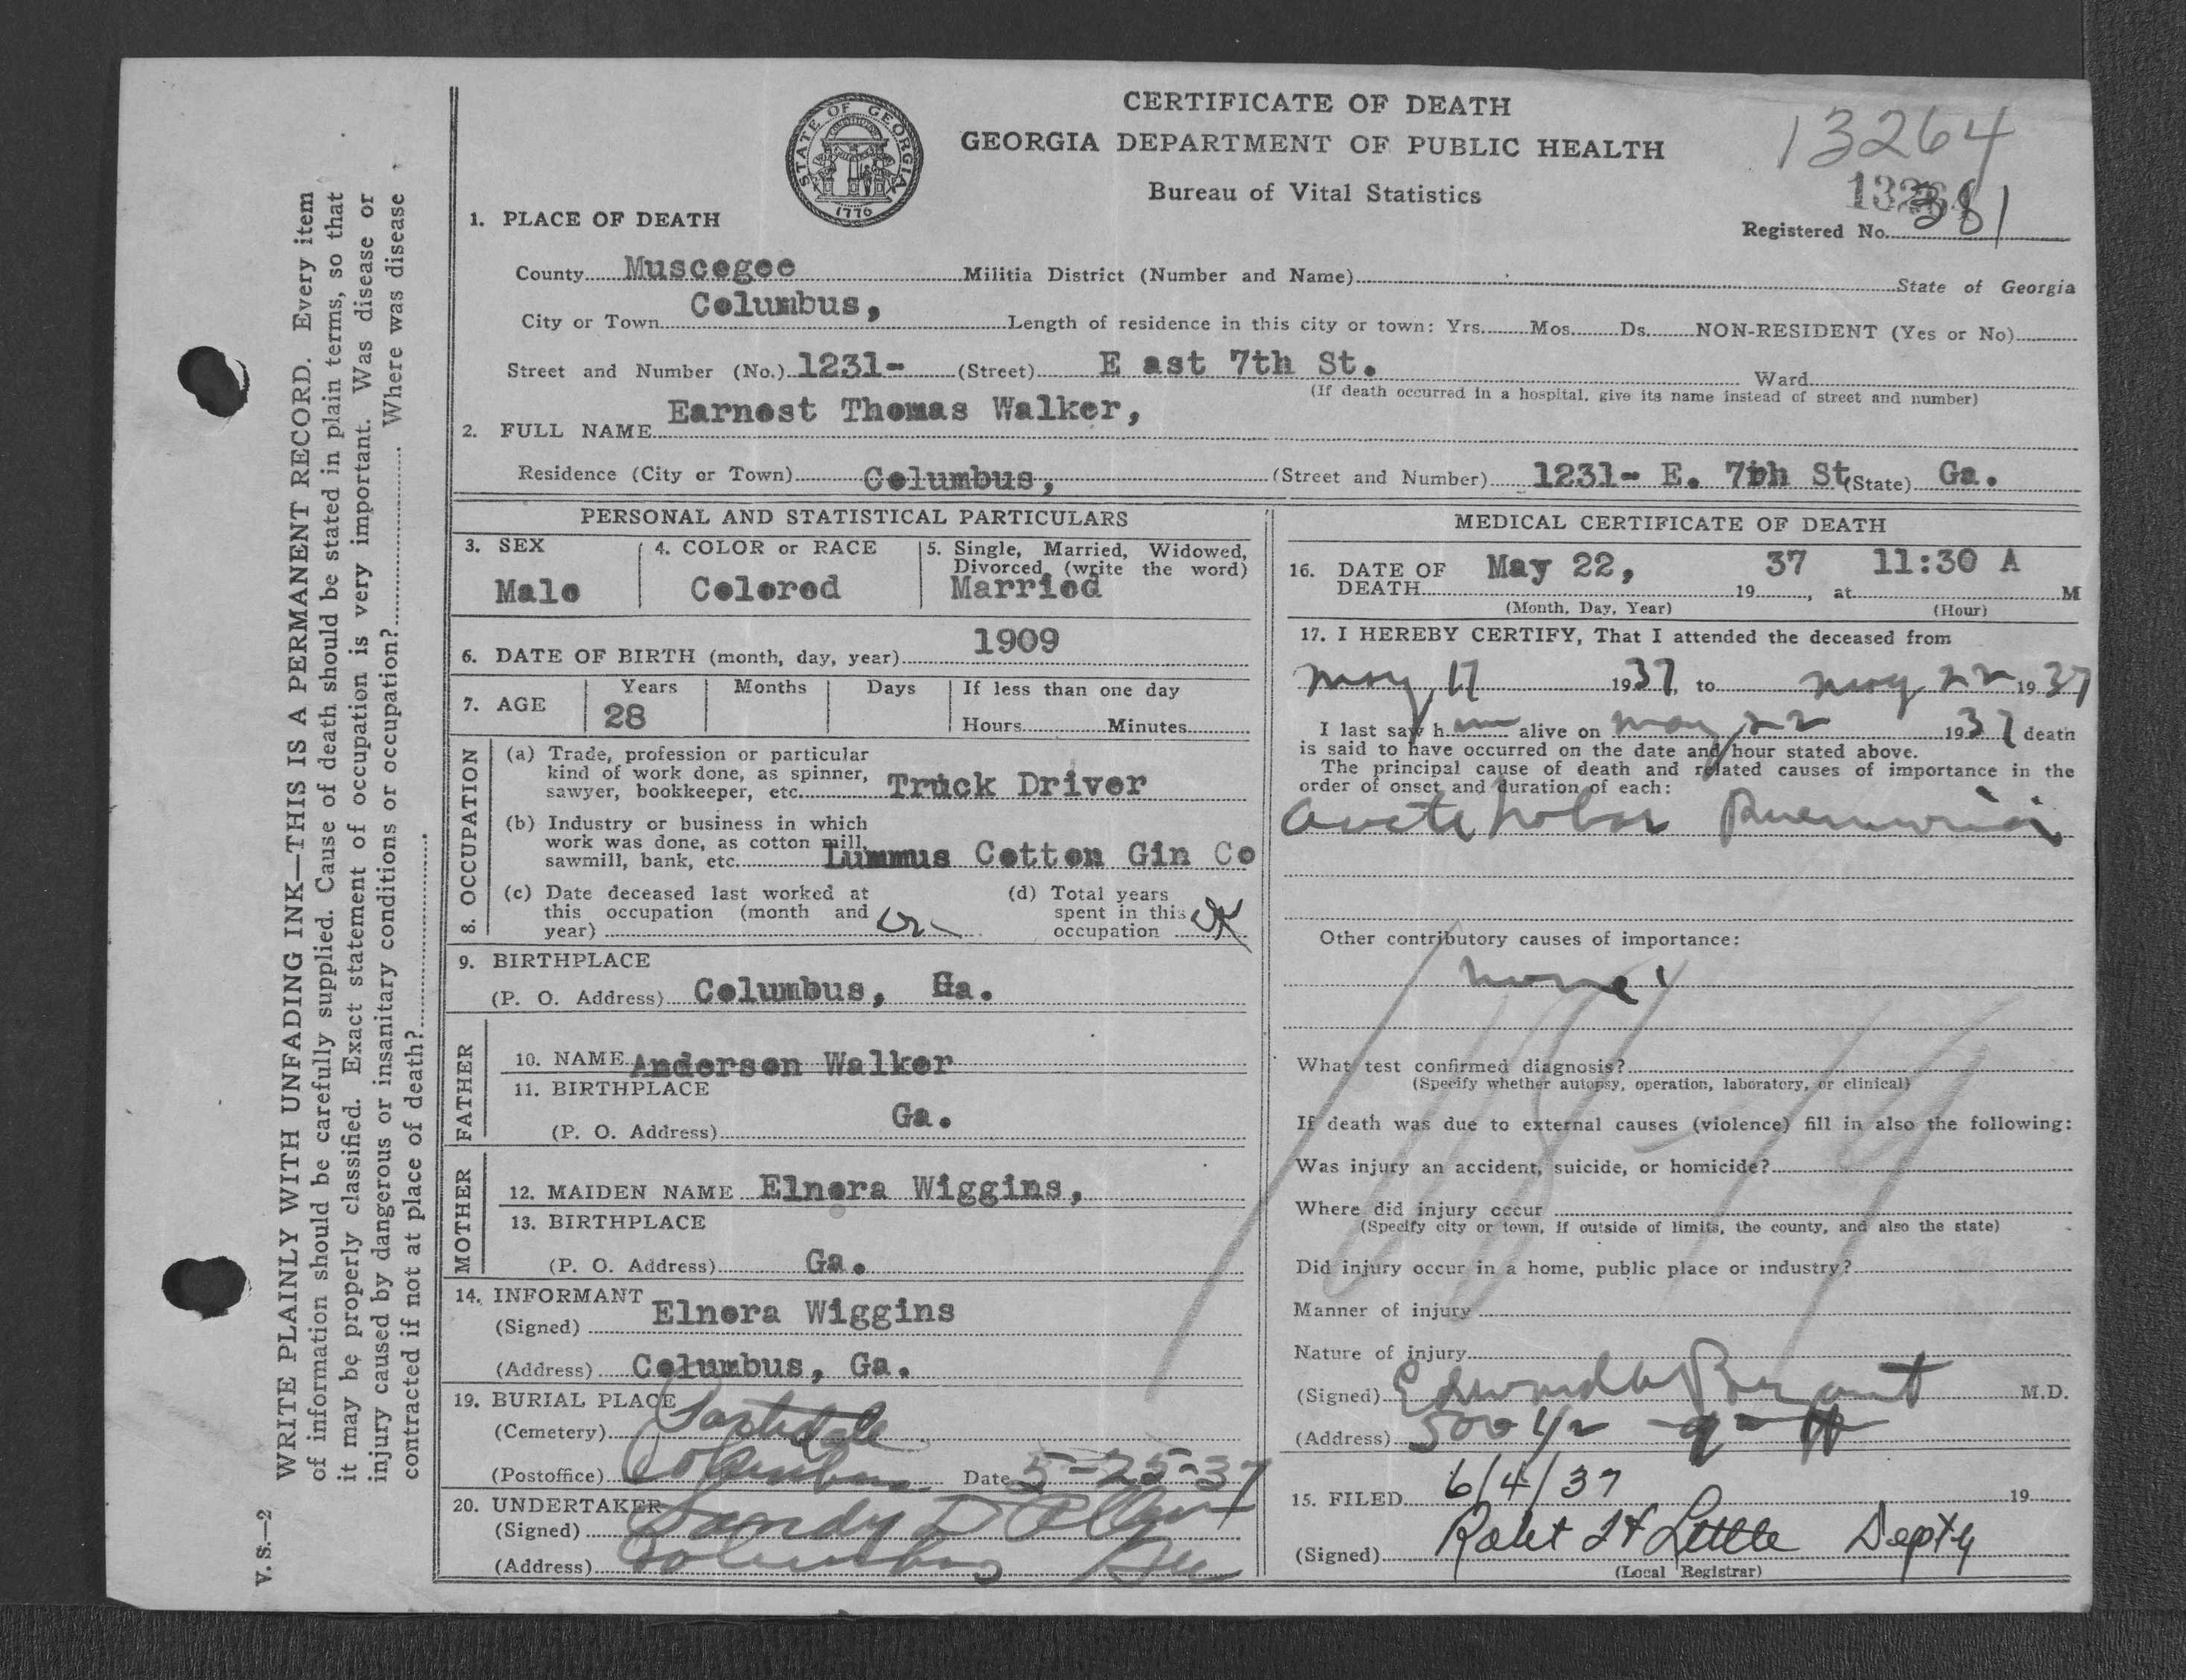 CERTIFICATE OF DEATH
GEORGIA DEPARTMENT OF PUBLIC HEALTH
Bureau of Vital Statistics
STATE OF GEORGIA
1776
13264
381
Registered No.
1. PLACE OF DEATH
County Muscogee Militia District (Number and Name) State of Georgia
City or Town Columbus, Length of residence in this city or town: Yrs. Mos. Ds. NON-RESIDENT (Yes or No)
Street and Number (No.) 1231- (Street) E ast 7th St. Ward
(If death occurred in a hospital, give its name instead of street and number)
2. FULL NAME Earnest Thomas Walker,
Residence (City or Town) Columbus, (Street and Number) 1231- E. 7th St (State) Ga.
PERSONAL AND STATISTICAL PARTICULARS
3. SEX Male
4. COLOR or RACE Colored
5. Single, Married, Widowed,
Divorced (write the word)
Married
6. DATE OF BIRTH (month, day, year) 1909
7. AGE Years 28 Months Days If less than one day
Hours Minutes
8. OCCUPATION
(a) Trade, profession or particular
kind of work done, as spinner,
sawyer, bookkeeper, etc. Truck Driver
(b) Industry or business in which
work was done, as cotton mill,
sawmill, bank, etc. Lummus Cotton Gin Co
(c) Date deceased last worked at
this occupation (month and
year)
(d) Total years
spent in this
occupation
9. BIRTHPLACE
(P. O. Address) Columbus, Ga.
FATHER
10. NAME Anderson Walker
11. BIRTHPLACE
(P. O. Address) Ga.
MOTHER
12. MAIDEN NAME Elnora Wiggins,
13. BIRTHPLACE
(P. O. Address) Ga.
14. INFORMANT
(Signed) Elnora Wiggins
(Address) Columbus, Ga.
19. BURIAL PLACE
(Cemetery)
(Postoffice) Columbus Date 5-25-37
20. UNDERTAKER
(Signed)
(Address) Columbus Ga
MEDICAL CERTIFICATE OF DEATH
16. DATE OF
DEATH May 22, 19 37, at 11:30 A M
(Month, Day, Year) (Hour)
17. I HEREBY CERTIFY, That I attended the deceased from
May 17 1937, to May 22 1937
I last saw him alive on May 22 1937 death
is said to have occurred on the date and hour stated above.
The principal cause of death and related causes of importance in the
order of onset and duration of each:
Acute Lobar Pneumonia
Other contributory causes of importance:
none
What test confirmed diagnosis?
(Specify whether autopsy, operation, laboratory, or clinical)
If death was due to external causes (violence) fill in also the following:
Was injury an accident, suicide, or homicide?
Where did injury occur
(Specify city or town, if outside of limits, the county, and also the state)
Did injury occur in a home, public place or industry?
Manner of injury
Nature of injury
(Signed) M.D.
(Address) 500 1/2
15. FILED 6/4/37 19
(Signed) Robt H Little Depty
(Local Registrar)
WRITE PLAINLY WITH UNFADING INK—THIS IS A PERMANENT RECORD. Every item
of information should be carefully supplied. Cause of death should be stated in plain terms, so that
it may be properly classified. Exact statement of occupation is very important. Was disease or
injury caused by dangerous or insanitary conditions or occupation? Where was disease
contracted if not at place of death?
V. S.—2